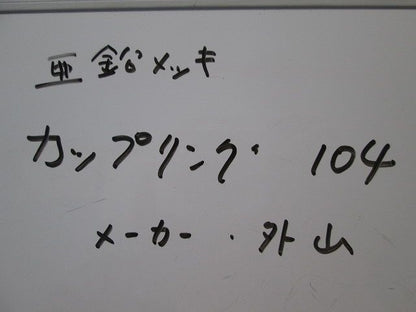 亜鉛メッキ
カップリング 104
メーカー・外山